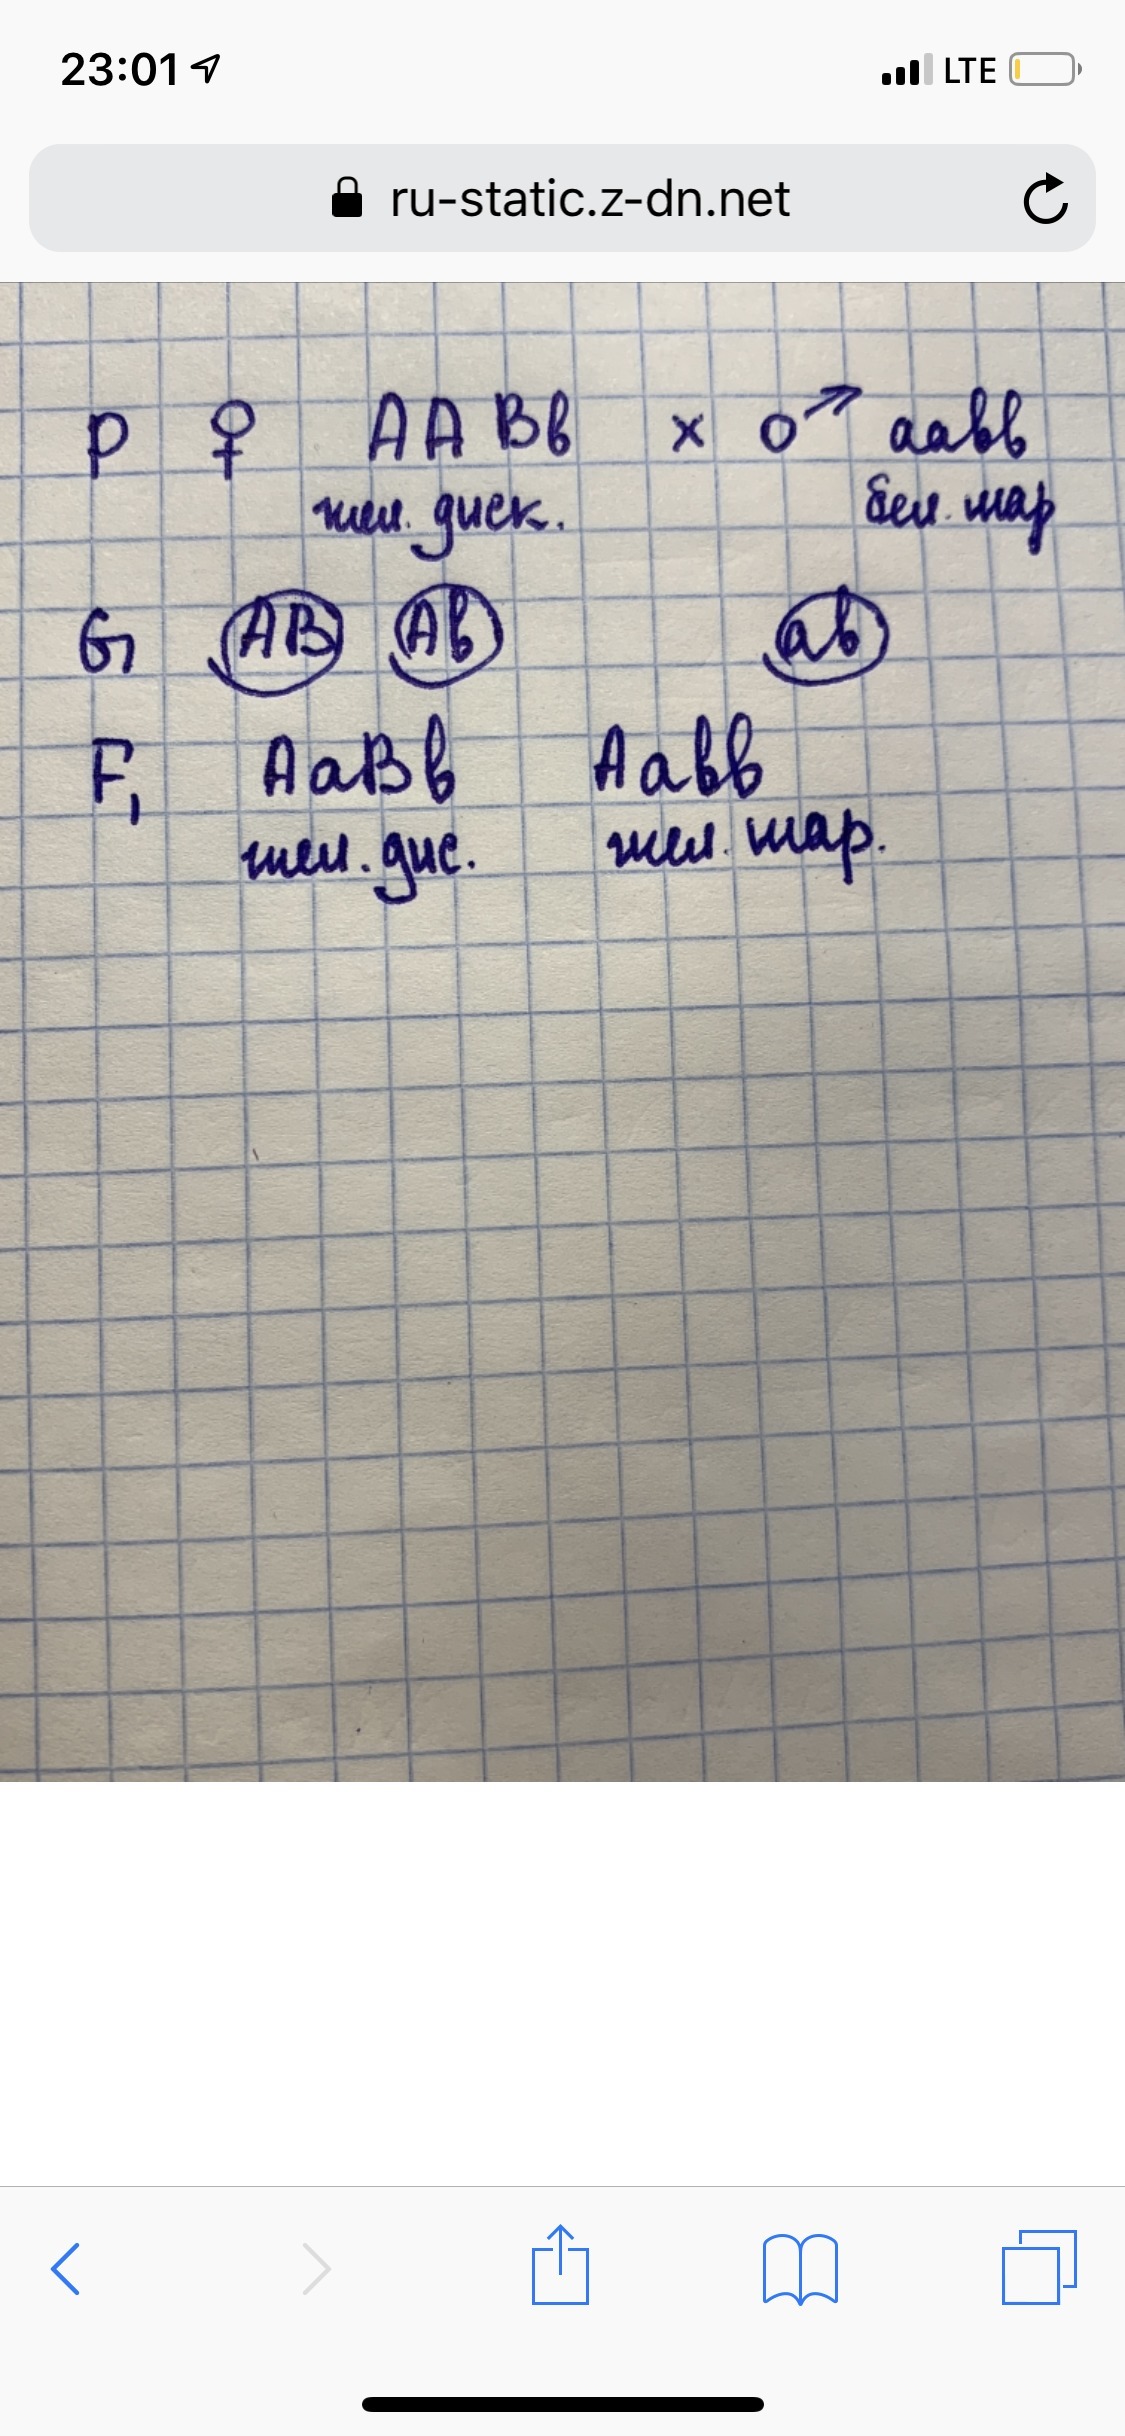 23:01 LTE
ru-static.z-dn.net
P ♀ AABb x ♂ aabb
жел. диск. бел. шар
G AB Ab ab
F₁ AaBb Aabb
жел. дис. жел. шар.